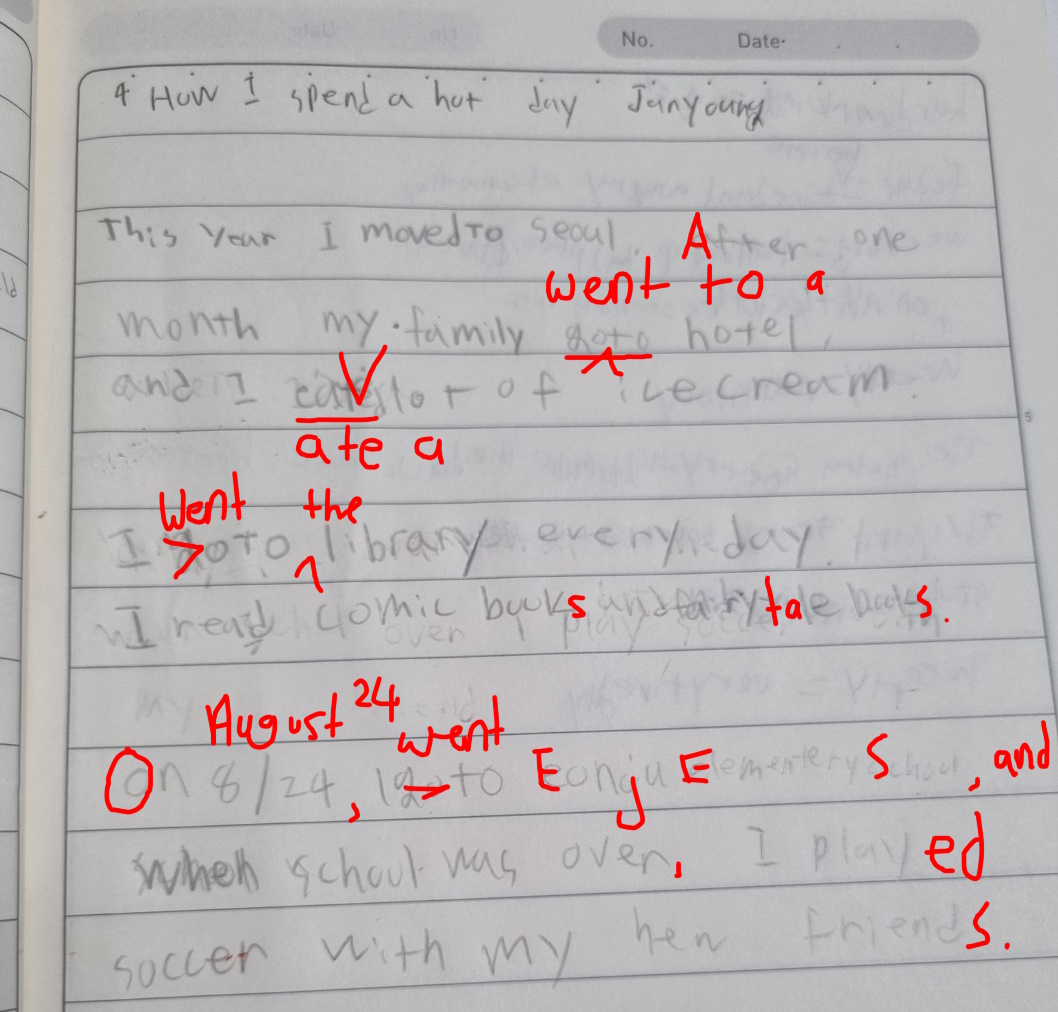 No. Date.
4 How I spend a hot day Junyoung
This Year I moved To seoul. After one
went to a
month my family goto hotel,
and I lot of icecream.
ate a
Went the
I goTo library every day.
I read comic books and fairy tale books.
August 24 went
On 8/24, I go to Eonju Elementery School, and
when school was over, I played
soccer with my new friends.
5